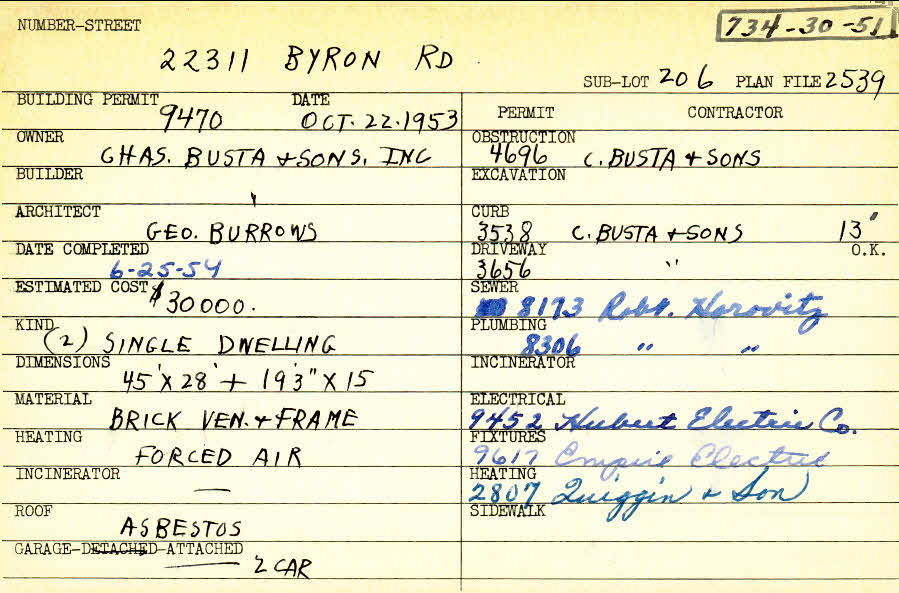 NUMBER-STREET
734-30-51
22311 BYRON RD
SUB-LOT 206 PLAN FILE 2539
BUILDING PERMIT DATE
9470 OCT. 22. 1953
OWNER
CHAS. BUSTA + SONS, INC
BUILDER
ARCHITECT
GEO. BURROWS
DATE COMPLETED
6-25-54
ESTIMATED COST
$30000.
KIND
(2) SINGLE DWELLING
DIMENSIONS
45' X 28' + 19'3" X 15
MATERIAL
BRICK VEN. + FRAME
HEATING
FORCED AIR
INCINERATOR
—
ROOF
ASBESTOS
GARAGE-DETACHED-ATTACHED
2 CAR
PERMIT CONTRACTOR
OBSTRUCTION
4696 C. BUSTA + SONS
EXCAVATION
CURB
3538 C. BUSTA + SONS 13"
DRIVEWAY O.K.
3656 "
SEWER
8173 Robt. Horovitz
PLUMBING
8306 " "
INCINERATOR
ELECTRICAL
9452 Hubert Electric Co.
FIXTURES
9617 Empire Electric
HEATING
2807 Quiggin + Son
SIDEWALK